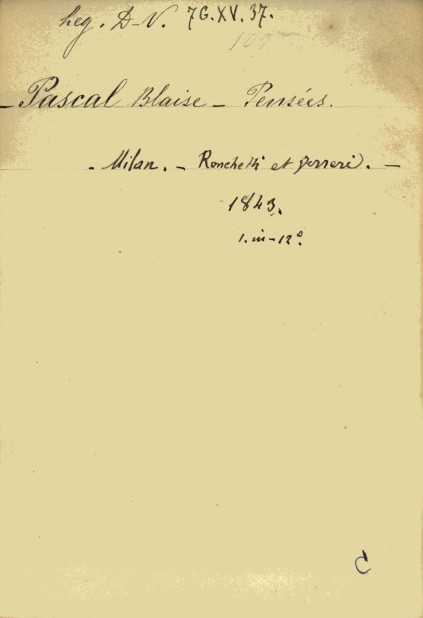 leg. D-V. 7G.XV.37.
109
Pascal Blaise - Pensées.
- Milan. - Ronchetti et Ferreri. -
1843.
1. in-12°.
C